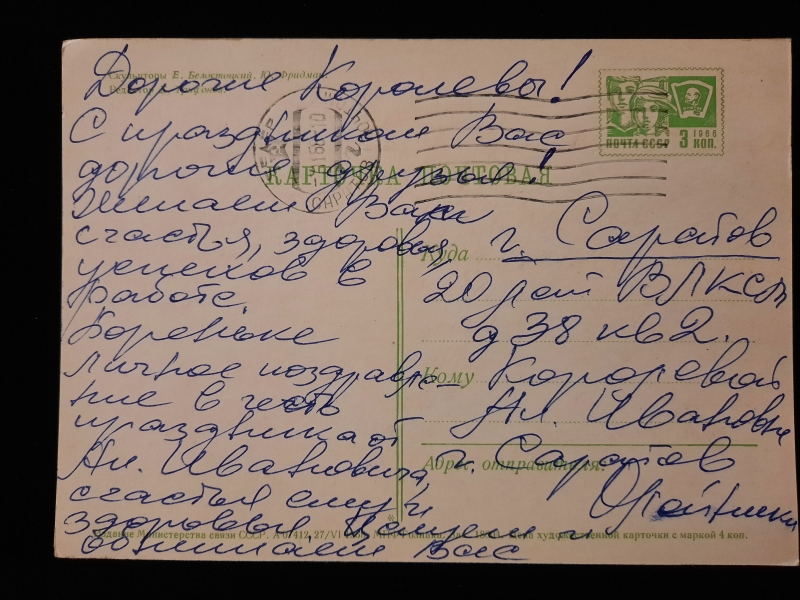 Скульпторы Е. Белостоцкий, Ю. Фридман.
Дорогие Королевы!
С праздником Вас
дорогие друзья!
Желаем Вам
счастья, здоровья,
успехов в
работе
личное поздравле-
ние в честь
праздника от
Ал. Ивановича,
счастья ему и
здоровья Целуем и
обнимаем Вас
1966
ПОЧТА СССР 3 КОП.
КАРТОЧКА ПОЧТОВАЯ
Куда г. Саратов
20 лет ВЛКСМ
д 38 кв 2.
Кому Королевой
Ал. Ивановне
Адрес отправителя: г. Саратов
Издание Министерства связи СССР.
Цена художественной карточки с маркой 4 коп.